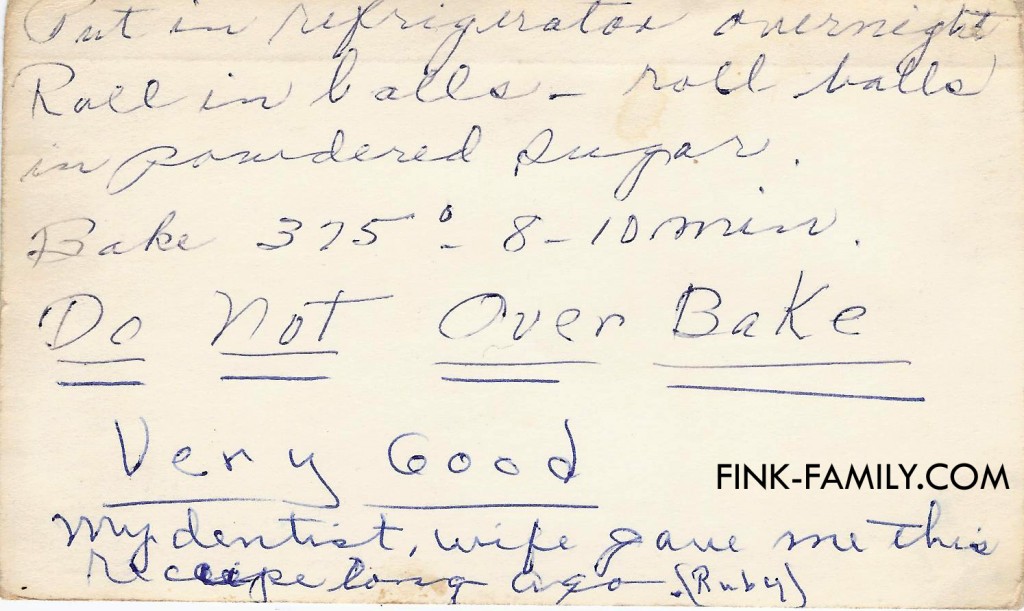 Put in refrigerator overnight
Roll in balls - roll balls
in powdered sugar.
Bake 375° - 8-10 min.
Do Not Over Bake
Very Good
FINK-FAMILY.COM
My dentist, wife gave me this
long ago (Ruby)